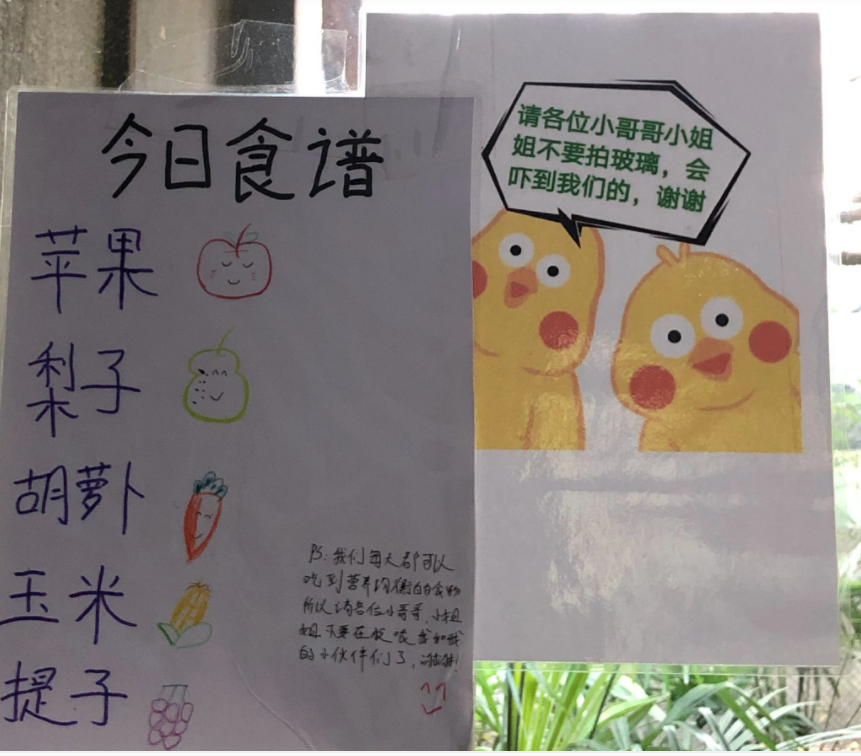 今日食谱
苹果
梨子
胡萝卜
玉米
提子
PS:我们每天都可以
吃到营养均衡的食物
所以请各位小哥哥、小姐
姐不要在投喂我和我
的小伙伴们了,谢谢!
请各位小哥哥小姐
姐不要拍玻璃，会
吓到我们的，谢谢